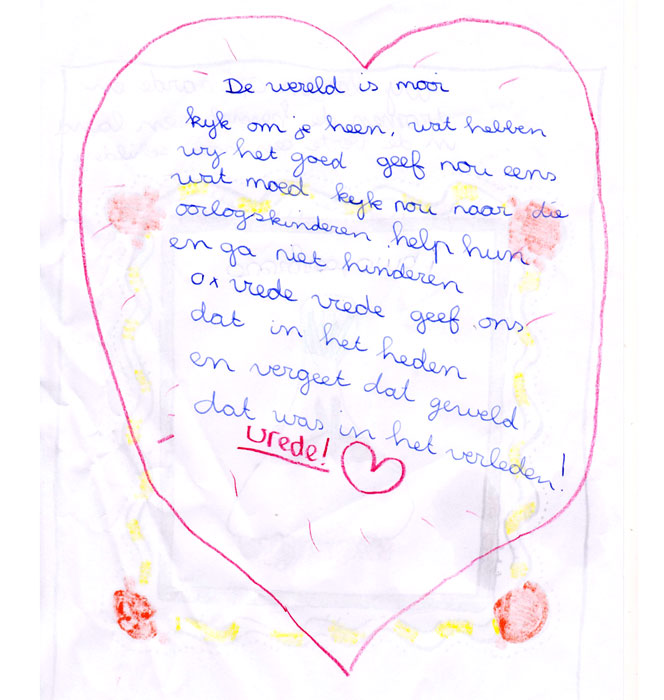 De wereld is mooi
kyk om je heen, wat hebben
wy het goed geef nou eens
wat moed kyk nou naar die
oorlogskinderen help hun
en ga niet hinderen
ox vrede vrede geef ons
dat in het heden
en vergeet dat geweld
dat was in het verleden!
vrede!